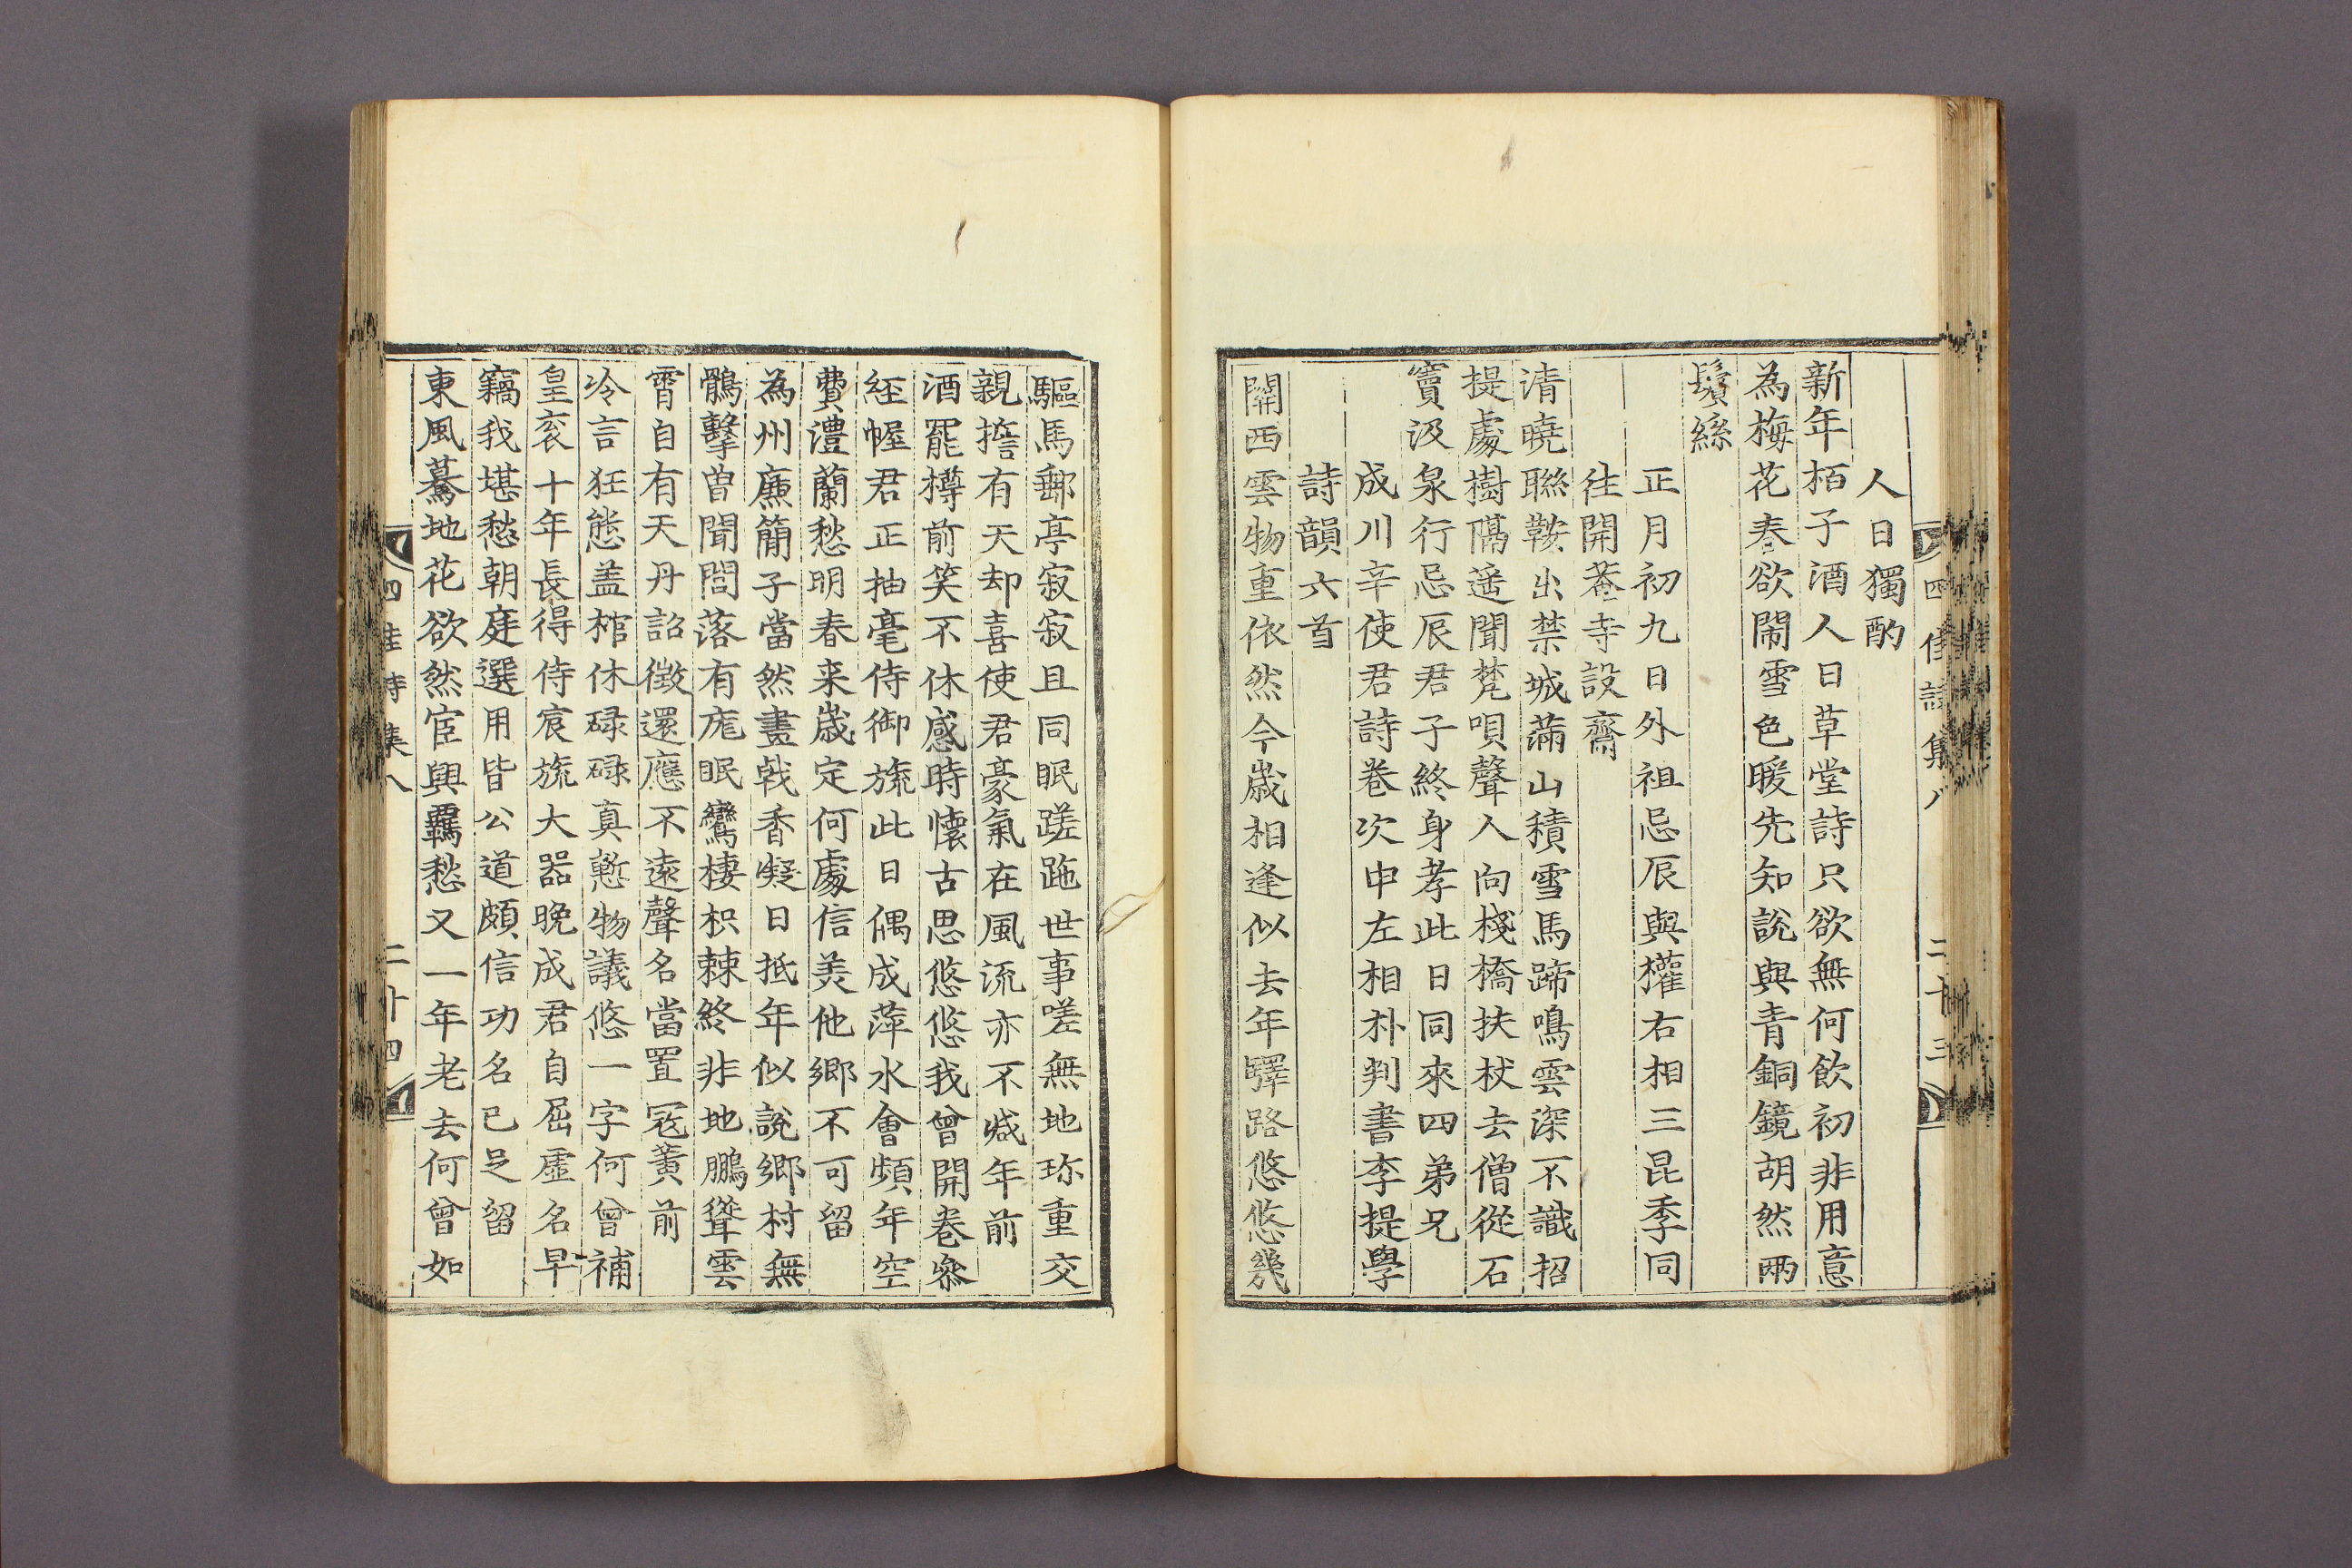 四佳詩集八 二十三
人日獨酌
新年栢子酒人日草堂詩只欲無何飮初非用意
為梅花春欲閙雪色暖先知說與青銅鏡胡然兩
鬢絲
正月初九日外祖忌辰與權右相三昆季同
徃開菴寺設齋
清曉聯鞍出禁城滿山積雪馬蹄鳴雲深不識招
提處樹隔遥聞梵唄聲人向棧橋扶杖去僧從石
竇汲泉行忌辰君子終身孝此日同來四弟兄
成川辛使君詩卷次申左相朴判書李提學
詩韻六首
關西雲物重依然今歲相逢似去年驛路悠悠幾
驅馬郵亭寂寂且同眠蹉跎世事嗟無地珎重交
親擔有天却喜使君豪氣在風流亦不减年前
酒罷樽前笑不休感時懷古思悠悠我曾開卷叅
經幄君正抽毫侍御旒此日偶成萍水會頻年空
費澧蘭愁明春来歲定何處信美他鄉不可留
為州廉簡子當然畫戟香凝日抵年似說鄉村無
鶻擊曾聞閭落有厖眠鸞棲枳棘終非地鵬聳雲
霄自有天丹詔徵還應不遠聲名當置冦黃前
冷言狂態盖棺休碌碌真慙物議悠一字何曾補
皇衮十年長得侍宸旒大器晚成君自屈虛名早
竊我堪愁朝庭選用皆公道頗信功名已足留
東風驀地花欲然宦興羈愁又一年老去何曾如
四佳詩集八 二十四